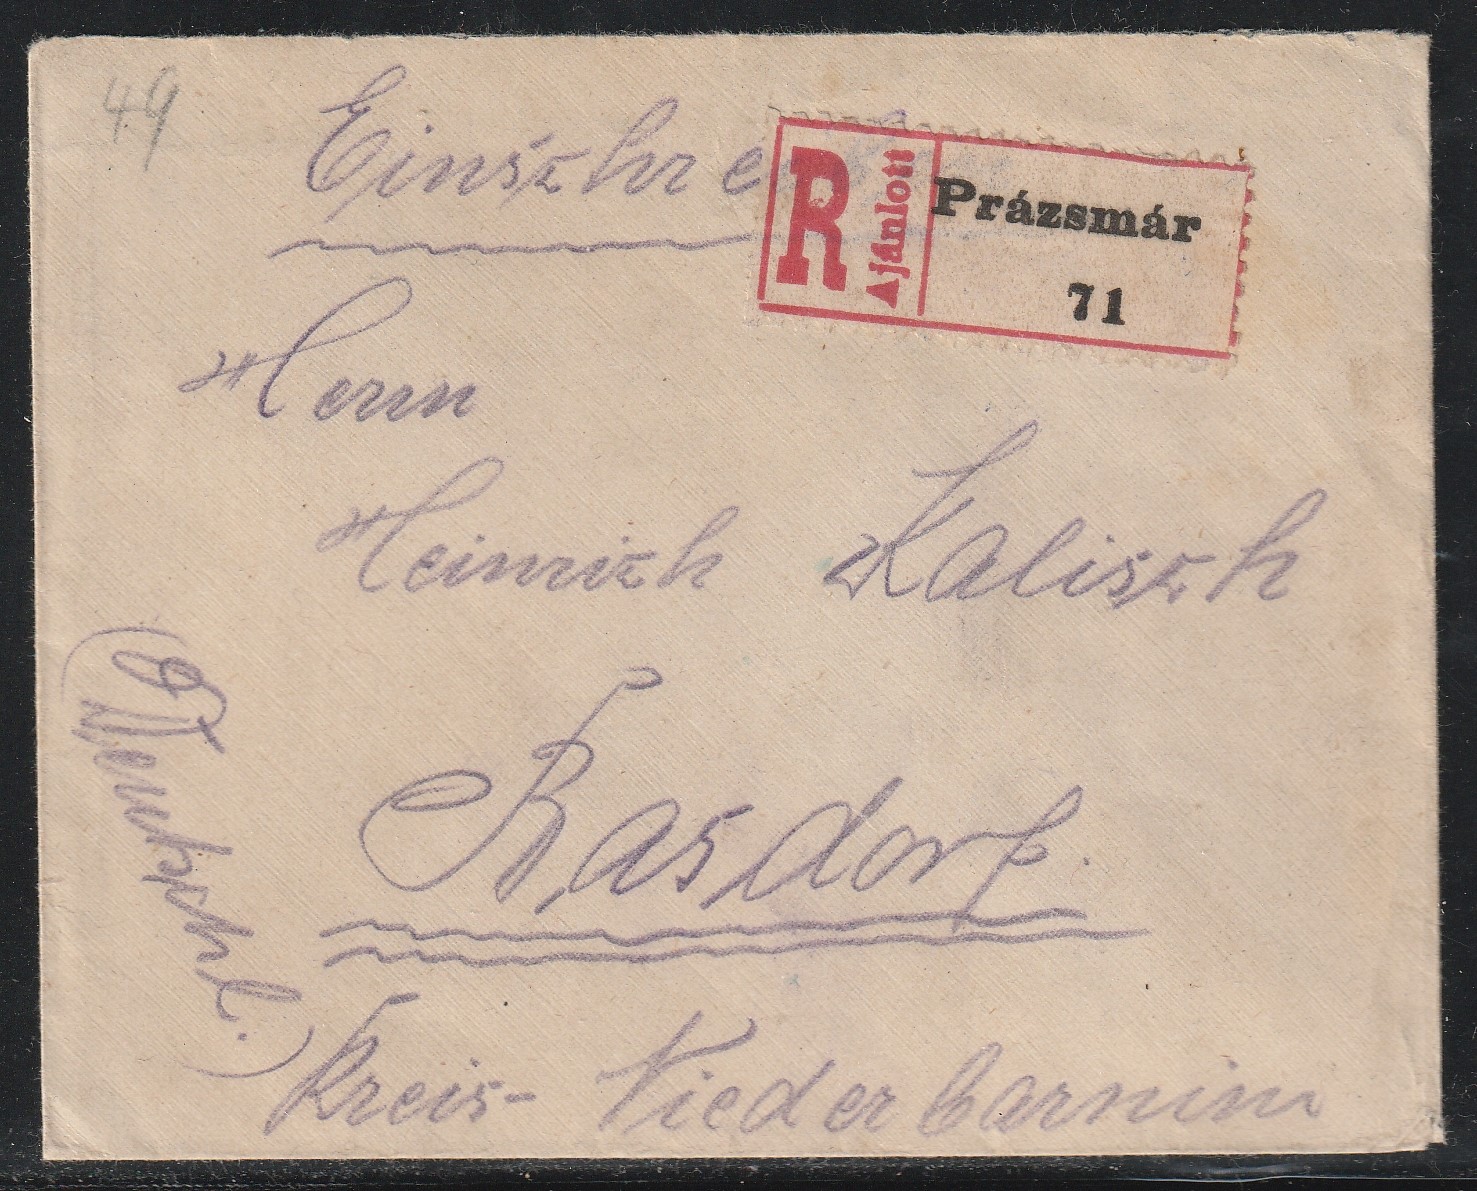 49
Einschre
R Ajánlott Prázsmár
71
Herrn
Heinrich Kalisch
Basdorf.
Kreis- Niederbarnim